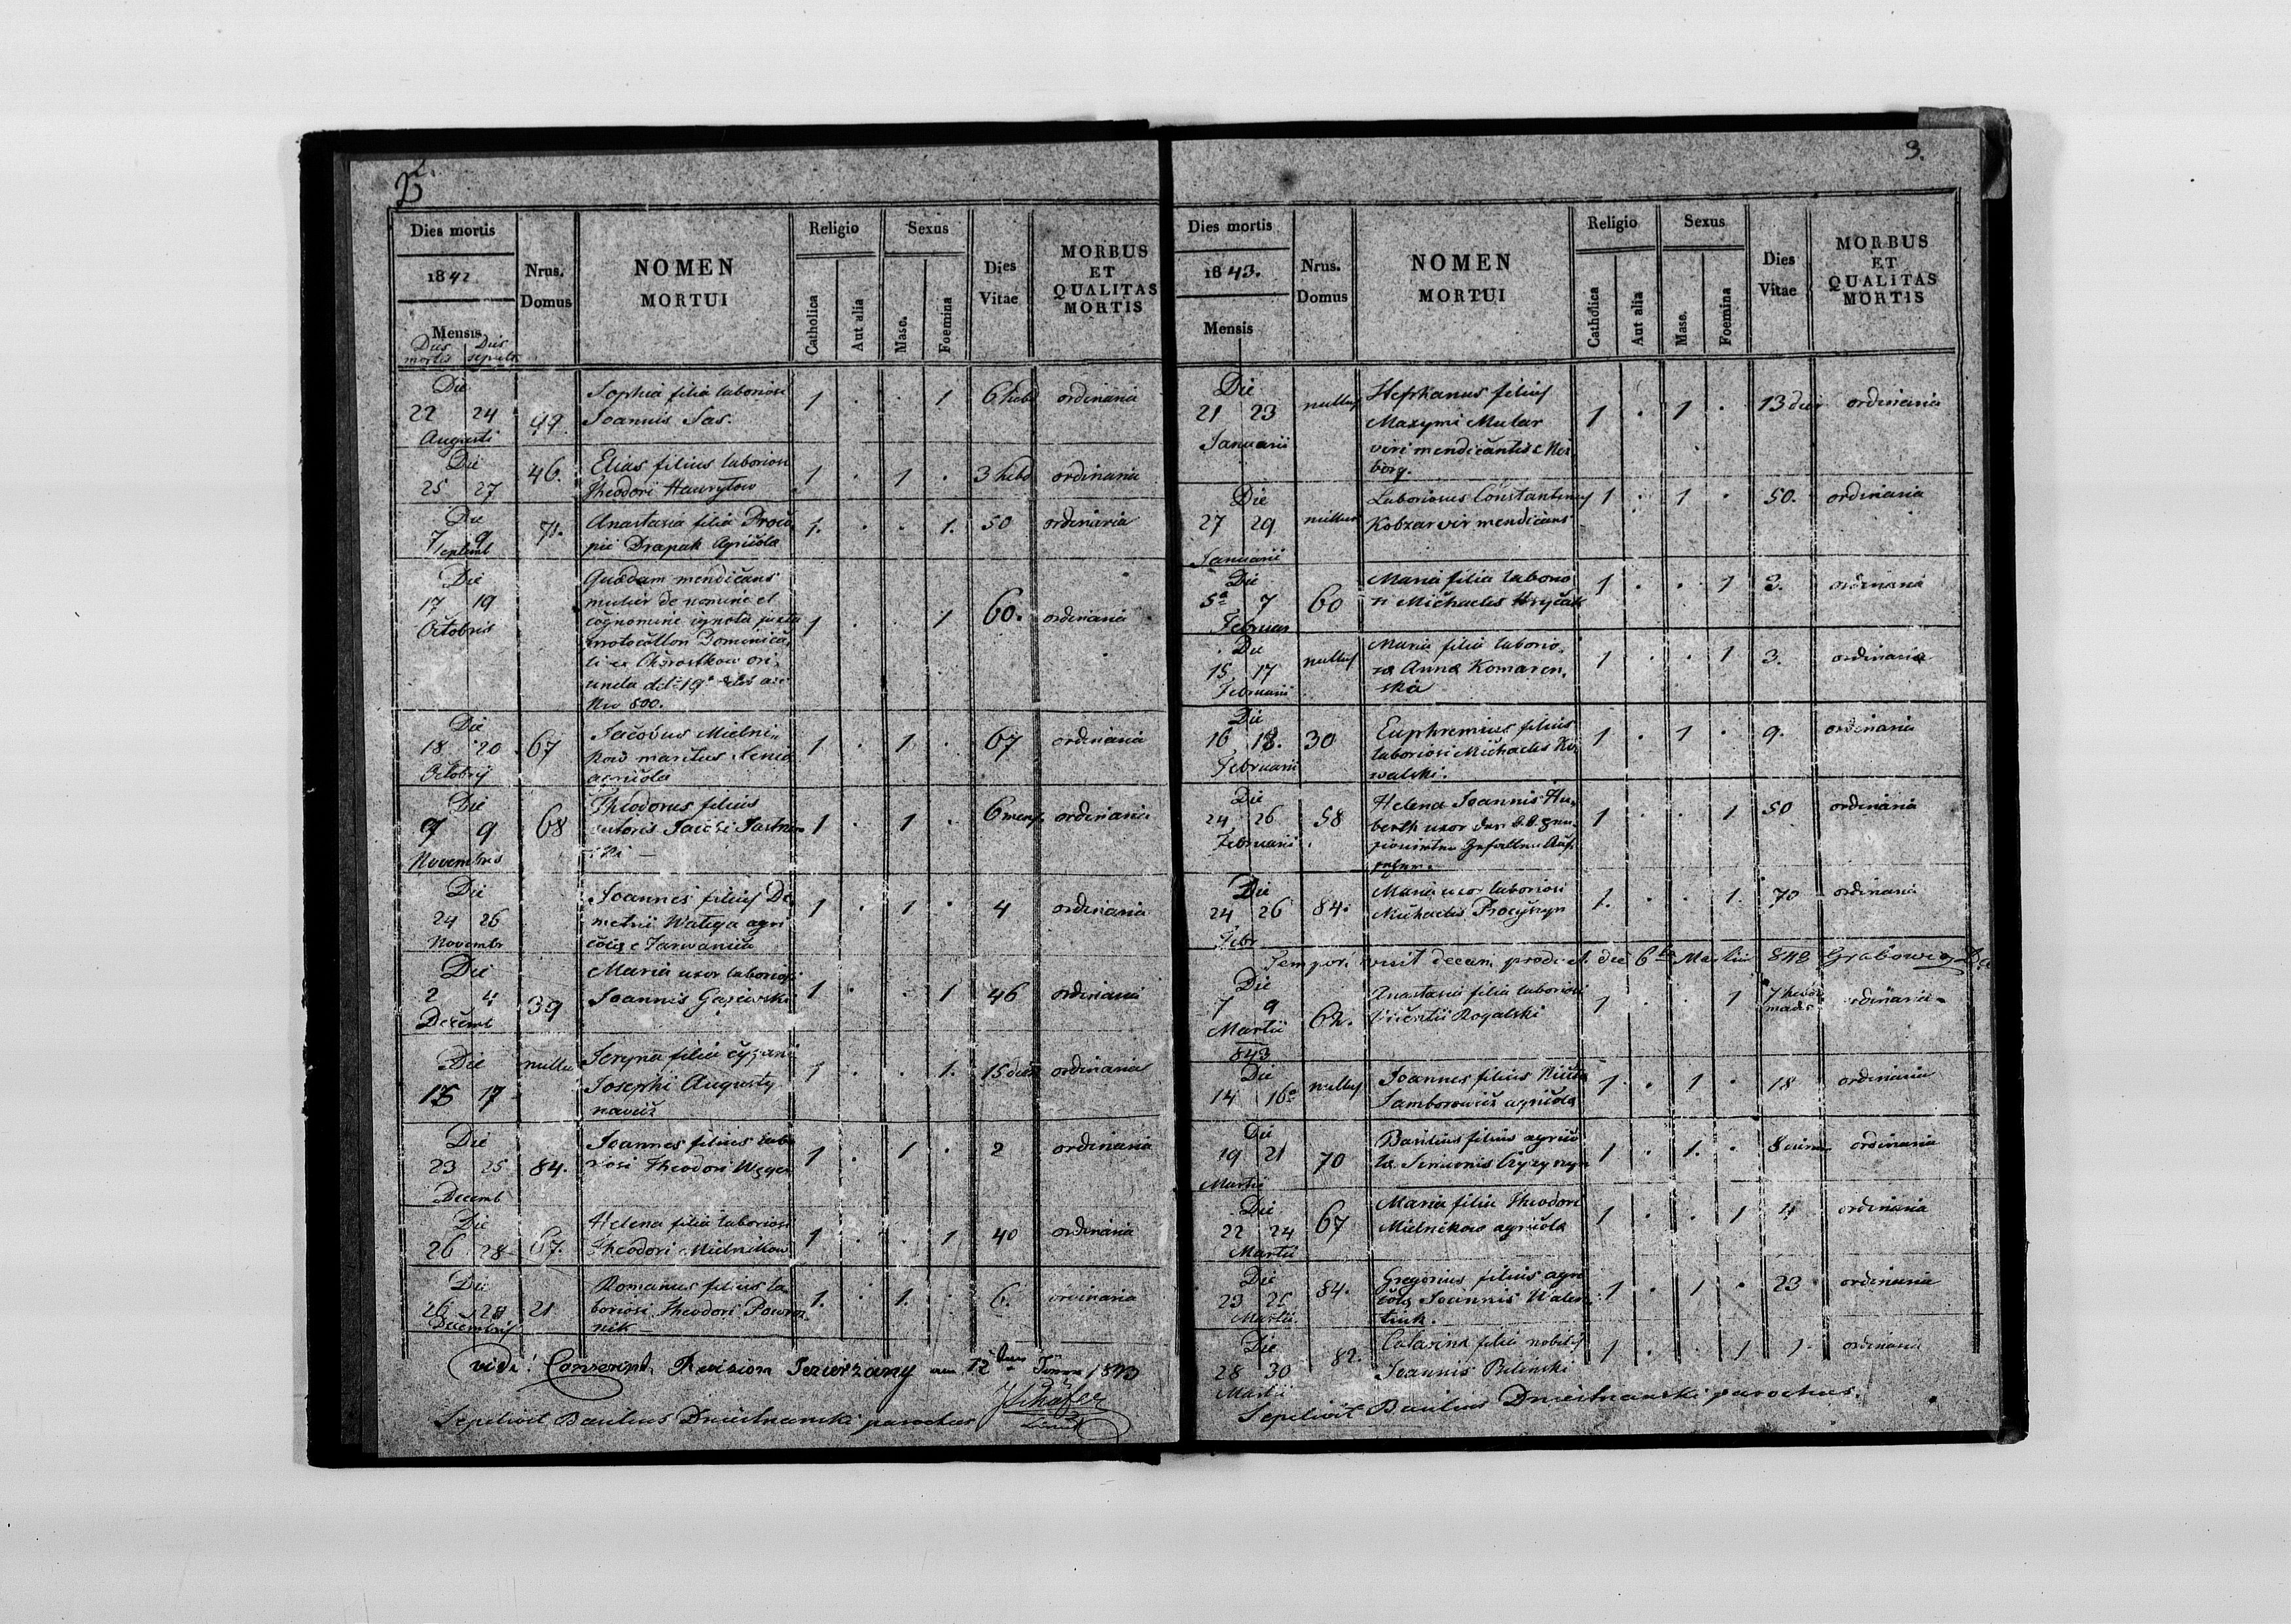 2.
Dies mortis
1842
Mensis
Dies mortis Dies sepult.
Nrus. Domus
NOMEN MORTUI
Religio
Catholica
Aut alia
Sexus
Masc.
Foemina
Dies Vitae
MORBUS ET QUALITAS MORTIS
Die
22 24
Augusti
49.
Sophia filia laboriosi
Joannis Sas.
1 . . 1 6 hebd ordinaria
Die
25 27
46.
Elias filius laboriosi
Theodori Hawrylow
1 . 1 . 3 hebd ordinaria
Die
7 9
Septemb
71.
Anastasia filia Proco
pii Drapak Agricola
1. . . 1. 50 ordinaria
Die
17 19
Octobris
Quædam mendicans
mulier de nomine et
cognomine ignota juxta
protocollon Dominica
li ex Chorostkow ori,
unda
Nro 500.
1 . . 1 60. ordinaria
Die
18 20
Octobris
67
Jacobus Mielni=
kow maritus
agricola
1 . 1 . 67 ordinaria
Die
7 9
Novembris
68
Theodorus filius
sutoris
1 . 1 . 6 mens. ordinaria
Die
24 26
Novembr
Joannes filius De
metrii Watega agri
colæ e Tarnawica
1 . 1 . 4 ordinaria
Die
2 4
Decemb
39
Maria uxor laboriosi
Joannis Gajewski
1 . . 1 46 ordinaria
Die
15 17
nullu
filia
Josephi Augusty
nowicz
1 . . 1. 15 dies ordinaria
Die
23 25
Decemb
84.
Joannes filius labo
riosi Theodori
1 . 1 . 2 ordinaria
Die
26 28
67.
Helena filia laboriosi
Theodori Mielnikow
1 . . 1 40 ordinaria
Die
26 28
Decembris
21
Romanus filius la
boriosi Theodori Powroz
nik
1. . 1. . 6. ordinaria
vidi! Conscript. Revision Jezierzany am 12 1843
Schäfer
Sepelivit Basilius Dniestrzanski parochus
3.
Dies mortis
1843.
Mensis
Nrus. Domus
NOMEN MORTUI
Religio
Catholica
Aut alia
Sexus
Masc.
Foemina
Dies Vitae
MORBUS ET QUALITAS MORTIS
Die
21 23
Januarii
nullus
Stephanus filius
Maxymi Mular
viri mendicantis
1 . 1 . 13 dier ordinaria
Die
27 29
Januarii
nullus
Laboriosus Constantinus
Kobzar vir mendicans
1 . 1 . 50. ordinaria
Die
5a 7
Februar
60
Maria filia laborio
si Michaelis Hryčak
1 . . 1 3. ordinaria
Die
15 17
Februarii
nullus
Maria filia laborio,
sæ Annæ Komaren,
ska
1 . . 1 3. ordinaria
Die
16 18.
Februarii
30
Euphremius filius
laboriosi Michaelis Ko
walski.
1 . 1 . 9. ordinaria
Die
24 26
Februarii
58
Helena Joannis Hu,
berth uxor
1 . . 1 50 ordinaria
Die
24 26
Febr
84.
Maria uxor laboriosi
Michaelis
1. . . 1. 70 ordinaria
Tempori visit decan. die 6 Martii 842 Grabowicz
Die
7 9
Martii
843
62.
Anastasia filia laboriosi
Rogalski
1 . . 1 7 hebdo
mades ordinaria
Die
14 16a
nullus
Joannes filius Nicola
Samborowicz agricola
1. . 1 . 18 ordinaria
Die
19 21
Martii
70
Basilius filius agrico
læ Simeonis
1 . 1. . ordinaria
Die
22 24
Martii
67
Maria filia Theodori
Mielnikow agricola
1 . . 1 4 ordinaria
Die
23 25
Martii
84.
Gregorius filius agri
colæ Joannis Walen,
tiuk.
1 . 1 . 23 ordinaria
Die
28 30
Martii
82.
Catarina filia nobilis
Joannis Bilinski
1 . . 1 1. ordinaria
Sepelivit Basilius Dniestrzanski parochus.